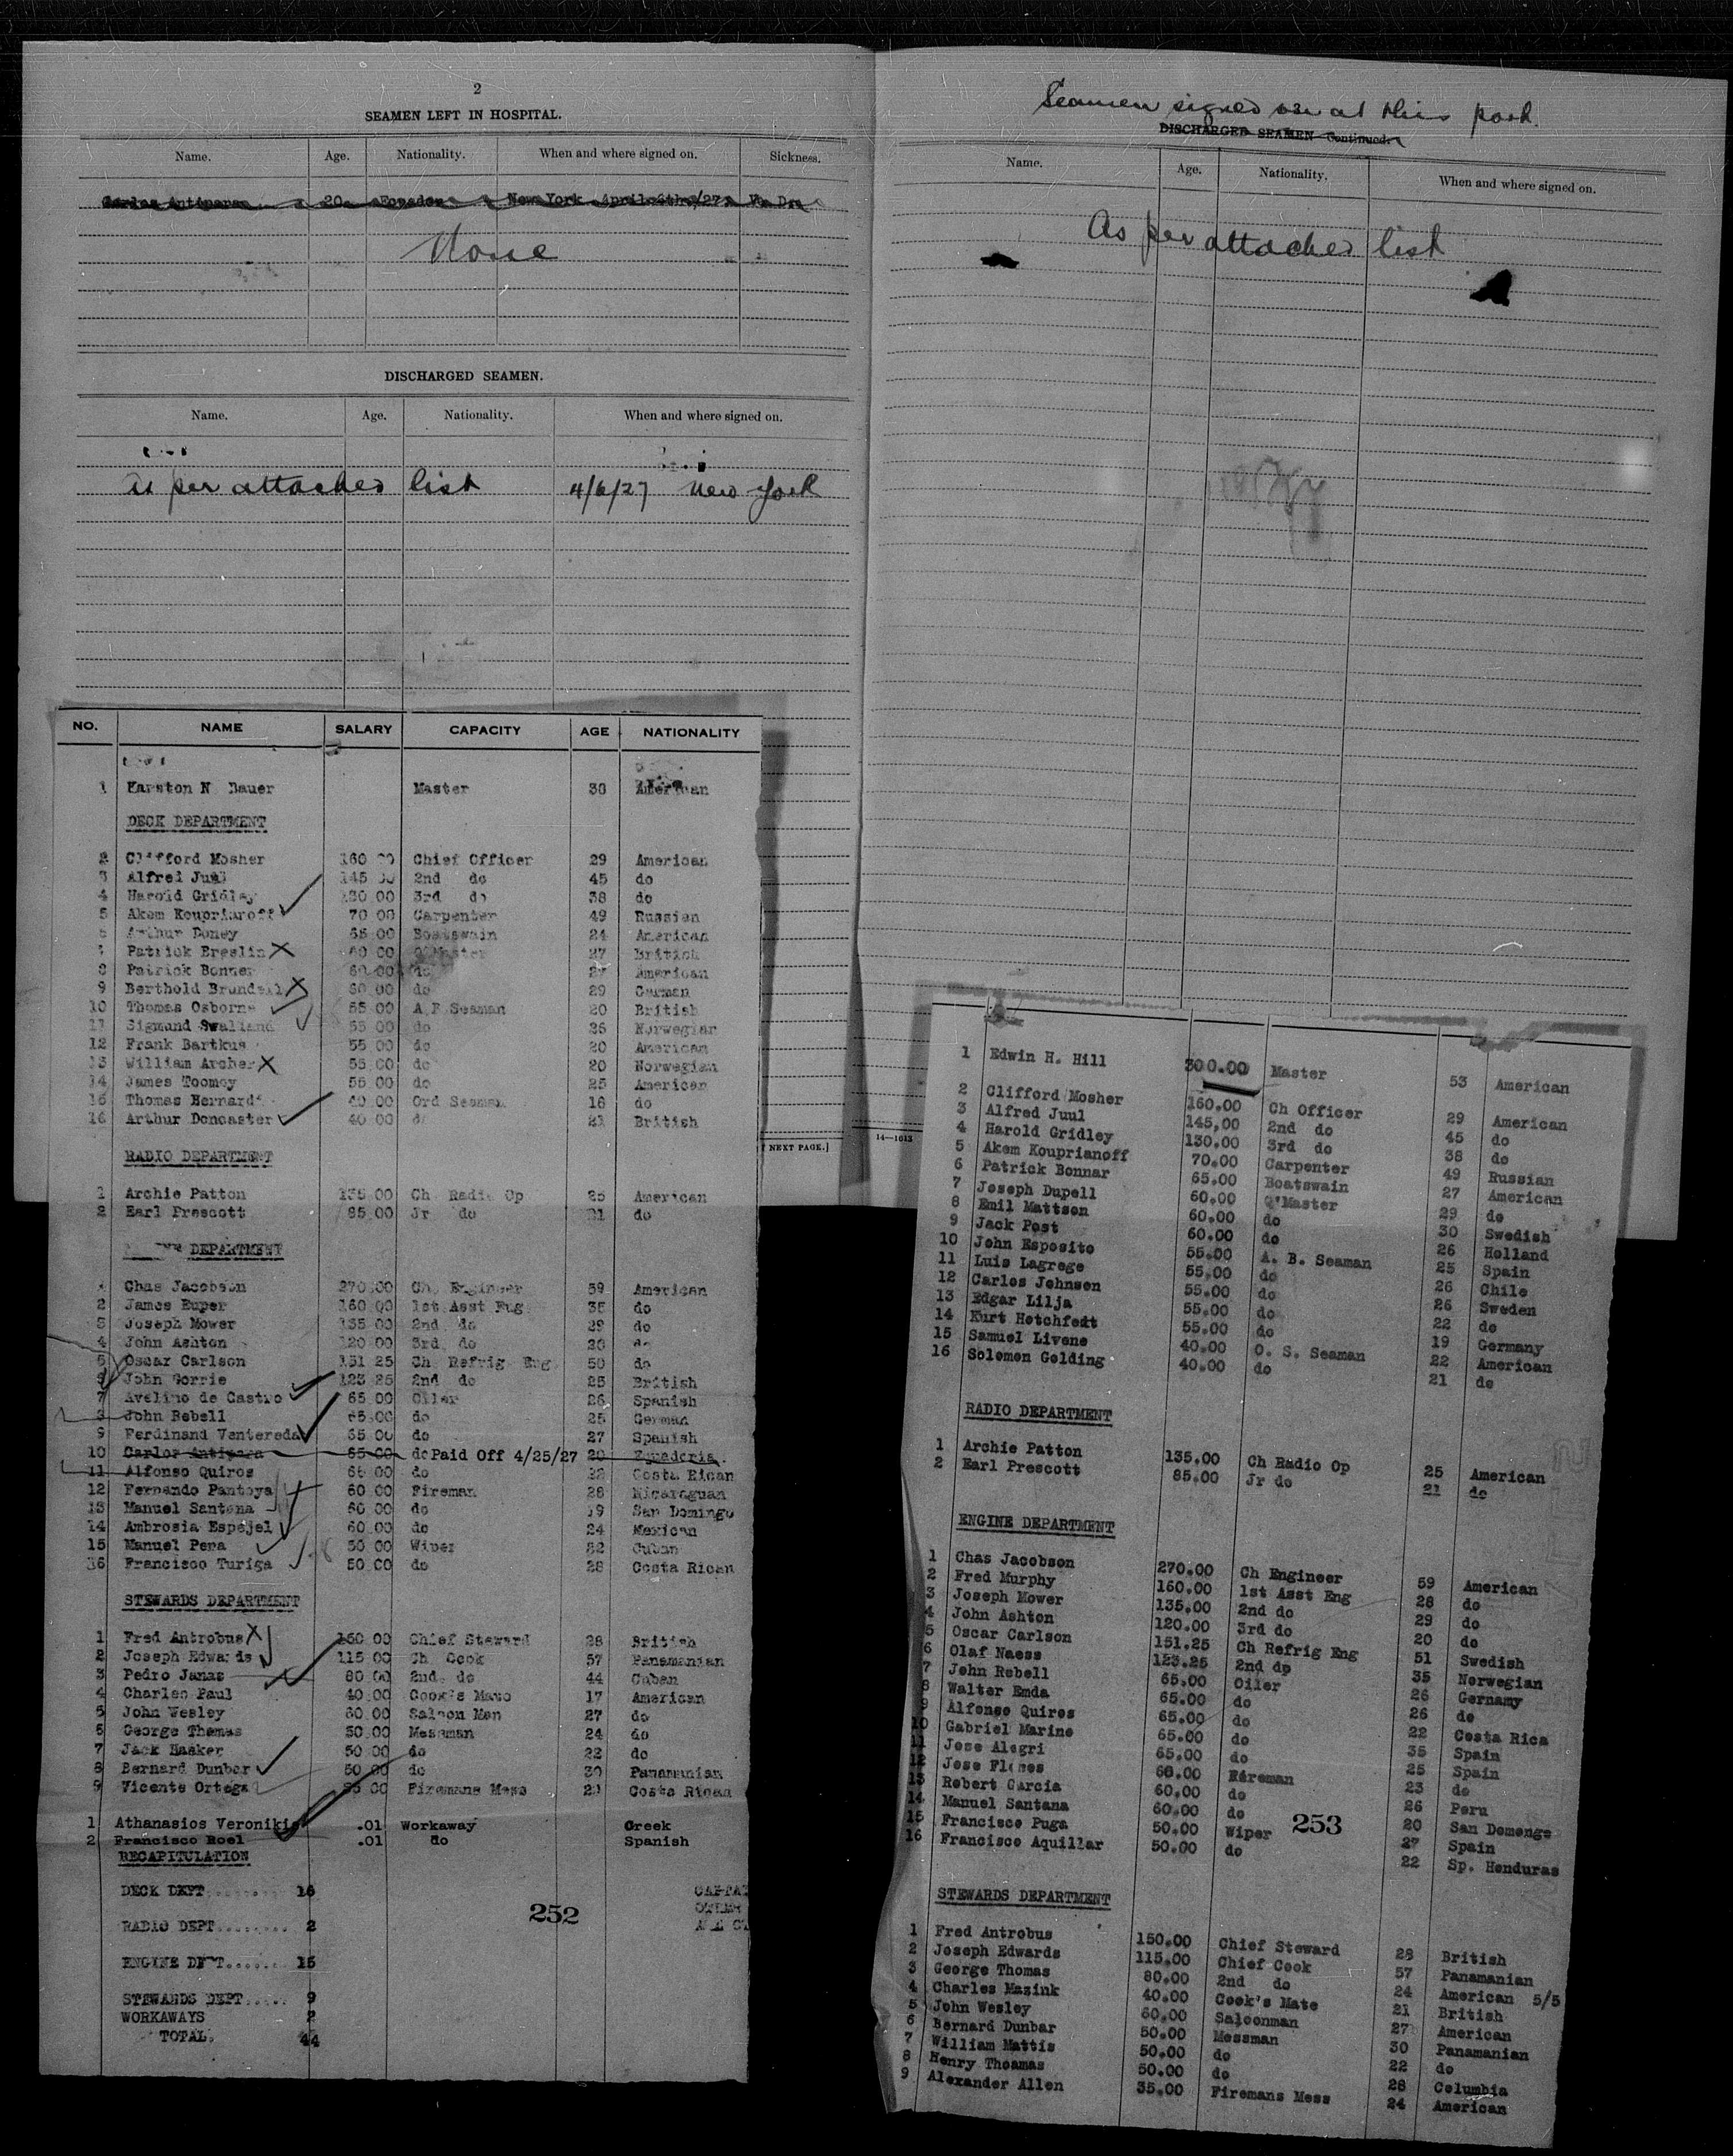 2
SEAMEN LEFT IN HOSPITAL.
Name. Age. Nationality. When and where signed on. Sickness.
Carlos Antipara 20 Ecuador New York April 6th /27 V. D.
None
DISCHARGED SEAMEN.
Name. Age. Nationality. When and where signed on.
As per attached list 4/6/27 New York
NO. NAME SALARY CAPACITY AGE NATIONALITY
1 Karston N Bauer Master 30 American
DECK DEPARTMENT
2 Clifford Mosher 160 00 Chief Officer 29 American
3 Alfred Juul 145 00 2nd do 45 do
4 Harold Gridley 130 00 3rd do 38 do
5 Akem Kouprianoff 70 00 Carpenter 49 Russian
6 Arthur Doney 65 00 Boatswain 24 American
7 Patrick Breslin 60 00 Q'Master 27 British
8 Patrick Bonner 60 00 do 27 American
9 Berthold 60 00 do 29 German
10 Thomas Osborne 55 00 A B Seaman 20 British
11 Sigmund Swalland 55 00 do 26 Norwegian
12 Frank Bartkus 55 00 do 20 American
13 William Archer 55 00 do 20 Norwegian
14 James Toomey 55 00 do 25 American
15 Thomas Bernardi 40 00 Ord Seaman 18 do
16 Arthur Doncaster 40 00 do 21 British
RADIO DEPARTMENT
1 Archie Patton 135 00 Ch Radio Op 25 American
2 Earl Prescott 85.00 Jr do 21 do
DEPARTMENT
1 Chas Jacobson 270.00 Ch. Engineer 59 American
2 James Euper 160 00 1st Asst Eng. 35 do
3 Joseph Mower 135 00 2nd do 29 do
4 John Ashton 120 00 3rd. do 20 do
5 Oscar Carlson 151 25 Ch Refrig Eng 50 do
6 John Gorrie 123 25 2nd do 25 British
7 Avelino de Castro 65 00 Oiler 26 Spanish
8 John Rebell 65.00 do 25 German
9 Ferdinand Ventereda 65 00 do 27 Spanish
10 Carlos Antipara 65 00 do Paid Off 4/25/27 20 Equadoria.
11 Alfonso Quiros 65 00 do 22 Costa Rican
12 Fernando Pantoya 60 00 Fireman 28 Nicaraguan
13 Manuel Santana 60 00 do 19 San Domingo
14 Ambrosia Espejel 60 00 do 24 Mexican
15 Manuel Pena 50 00 Wiper 22 Cuban
16 Francisco Turiga 50.00 do 28 Costa Rican
STEWARDS DEPARTMENT
1 Fred Antrobus 150 00 Chief Steward 28 British
2 Joseph Edwards 115 00 Ch Cook 57 Panamanian
3 Pedro Janas 80 00 2nd. do 44 Cuban
4 Charles Paul 40 00 Cook's Mate 17 American
5 John Wesley 60.00 Saloon Man 27 do
6 George Thomas 50.00 Messman 24 do
7 Jack Hasker 50 00 do 22 do
8 Bernard Dunbar 50 00 do 30 Panamanian
9 Vicente Ortega 35 00 Firemans Mess 20 Costa Rican
1 Athanasios Veronikis .01 Workaway Greek
2 Francisco Roel .01 do Spanish
RECAPITULATION
DECK DEPT 16
252
RADIO DEPT 2
ENGINE DEPT 15
STEWARDS DEPT 9
WORKAWAYS 2
TOTAL 44
NEXT PAGE.]
Seamen signed on at this port.
DISCHARGED SEAMEN—Continued.
Name. Age. Nationality. When and where signed on.
As per attached list
14—1613
1 Edwin H. Hill 300.00 Master 53 American
2 Clifford Mosher 160.00 Ch Officer 29 American
3 Alfred Juul 145,00 2nd do 45 do
4 Harold Gridley 130.00 3rd do 38 do
5 Akem Kouprianoff 70.00 Carpenter 49 Russian
6 Patrick Bonnar 65.00 Boatswain 27 American
7 Joseph Dupell 60.00 Q'Master 29 do
8 Emil Mattson 60.00 do 30 Swedish
9 Jack Post 60.00 do 26 Holland
10 John Esposito 55.00 A. B. Seaman 25 Spain
11 Luis Lagrege 55.00 do 26 Chile
12 Carlos Johnson 55.00 do 26 Sweden
13 Edgar Lilja 55.00 do 22 do
14 Kurt Hotchfedt 55.00 do 19 Germany
15 Samuel Livene 40.00 O. S. Seaman 22 American
16 Solomon Golding 40.00 do 21 do
RADIO DEPARTMENT
1 Archie Patton 135.00 Ch Radio Op 25 American
2 Earl Prescott 85.00 Jr do 21 do
ENGINE DEPARTMENT
1 Chas Jacobson 270.00 Ch Engineer 59 American
2 Fred Murphy 160.00 1st Asst Eng 28 do
3 Joseph Mower 135.00 2nd do 29 do
4 John Ashton 120.00 3rd do 20 do
5 Oscar Carlson 151.25 Ch Refrig Eng 51 Swedish
6 Olaf Naess 123.25 2nd do 35 Norwegian
7 John Rebell 65.00 Oiler 26 Gernamy
8 Walter Emda 65.00 do 26 do
9 Alfonso Quiros 65.00 do 22 Costa Rica
10 Gabriel Marino 65.00 do 35 Spain
11 Jose Alegri 65.00 do 25 Spain
12 Jose Flores 60.00 Fireman 23 do
13 Robert Garcia 60.00 do 26 Peru
14 Manuel Santana 60.00 do 20 San Domongo
253
15 Francisco Puga 50.00 Wiper 27 Spain
16 Francisco Aquillar 50.00 do 22 Sp. Honduras
STEWARDS DEPARTMENT
1 Fred Antrobus 150.00 Chief Steward 28 British
2 Joseph Edwards 115.00 Chief Cook 57 Panamanian
3 George Thomas 80.00 2nd do 24 American 5/5
4 Charles Mazink 40.00 Cook's Mate 21 British
5 John Wesley 60.00 Saloonman 27 American
6 Bernard Dunbar 50.00 Messman 30 Panamanian
7 William Mattis 50.00 do 22 do
8 Henry Thoamas 50.00 do 28 Columbia
9 Alexander Allen 35.00 Firemans Mess 24 American